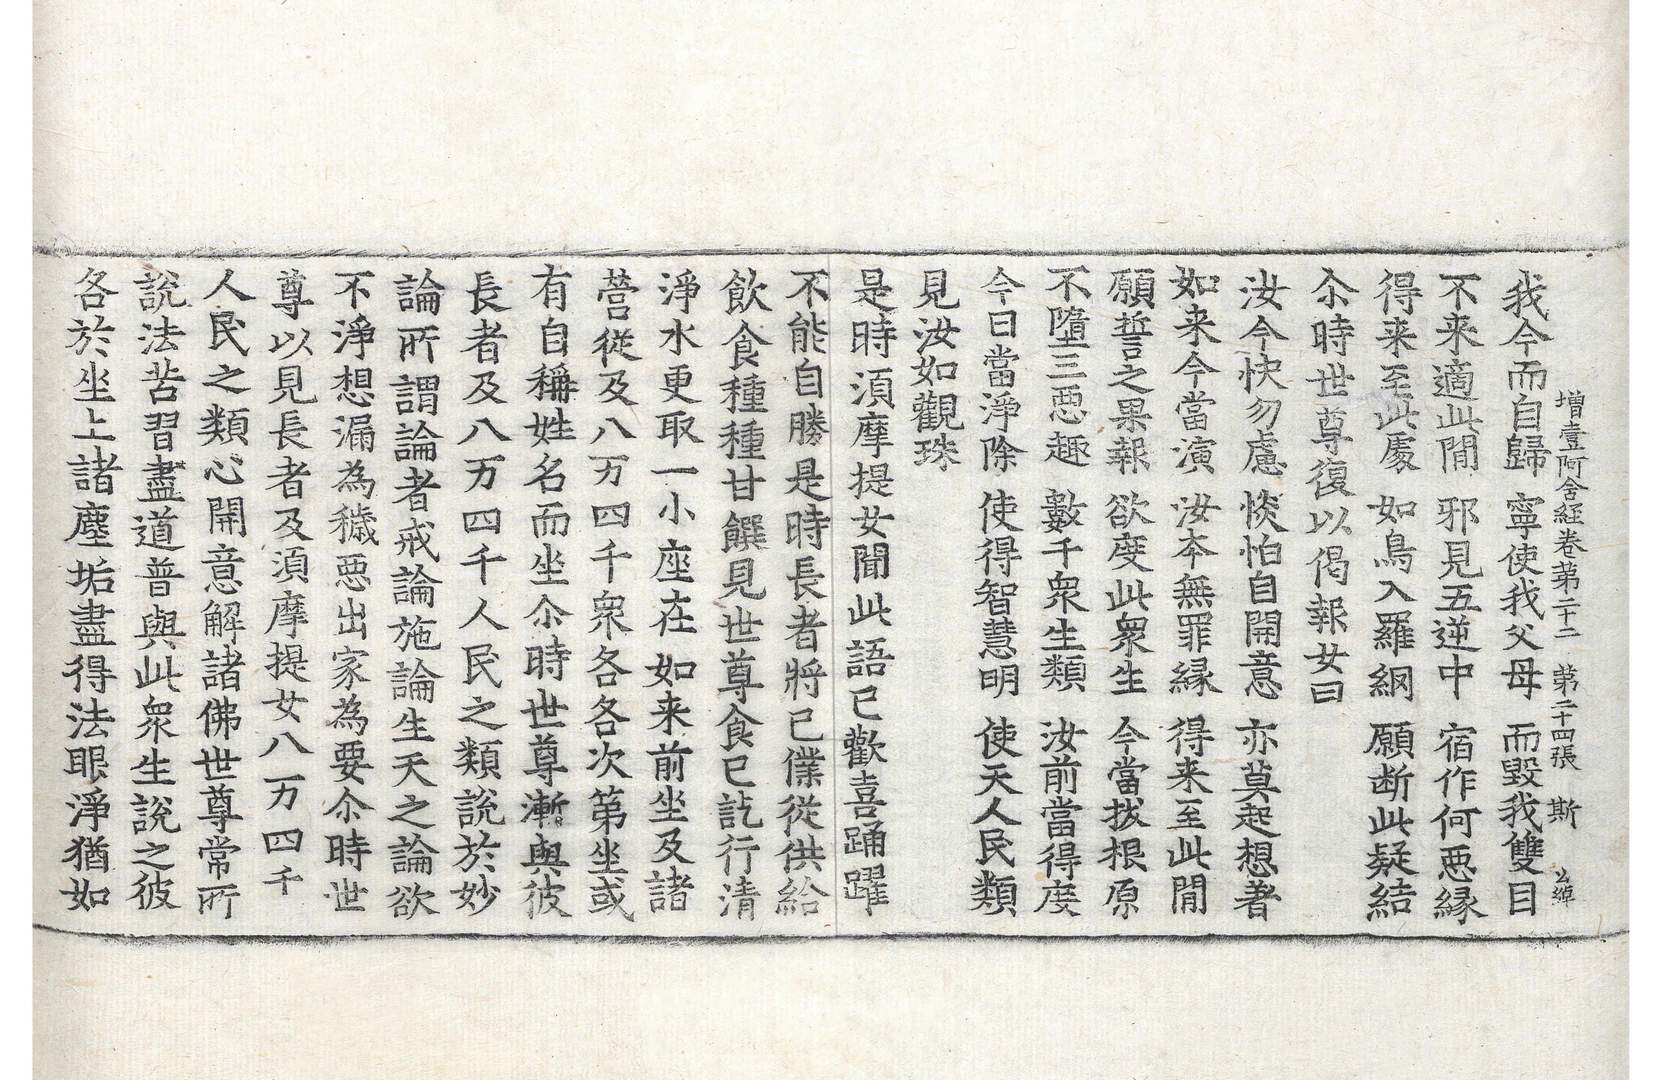 增壹阿含經卷第二十二　第二十四張　斯　公緯
我今而自歸　寧使我父母　而毀我雙目
不来適此閒　邪見五逆中　宿作何恶緣
得来至此處　如鳥入羅網　願断此疑結
尒時世尊復以偈報女曰
汝今快勿慮　惔怕自開意　亦莫起想著
如来今當演　汝夲無罪緣　得来至此閒
願誓之果報　欲度此衆生　今當拔根原
不墮三恶趣　數千衆生類　汝前當得度
今日當淨除　使得智慧明　使天人民類
見汝如觀珠
是時須摩提女聞此語已歡喜踊躍
不能自勝是時長者將已僕從供給
飲食種種甘饌見世尊食已訖行清
淨水更取一小座在如来前坐及諸
營從及八万四千衆各各次第坐或
有自稱姓名而坐尒時世尊漸與彼
長者及八万四千人民之類說於妙
論所謂論者戒論施論生天之論欲
不淨想漏為穢恶出家為要尒時世
尊以見長者及須摩提女八万四千
人民之類心開意解諸佛世尊常所
說法苦習盡道普與此衆生說之彼
各於坐上諸塵垢盡得法眼淨猶如